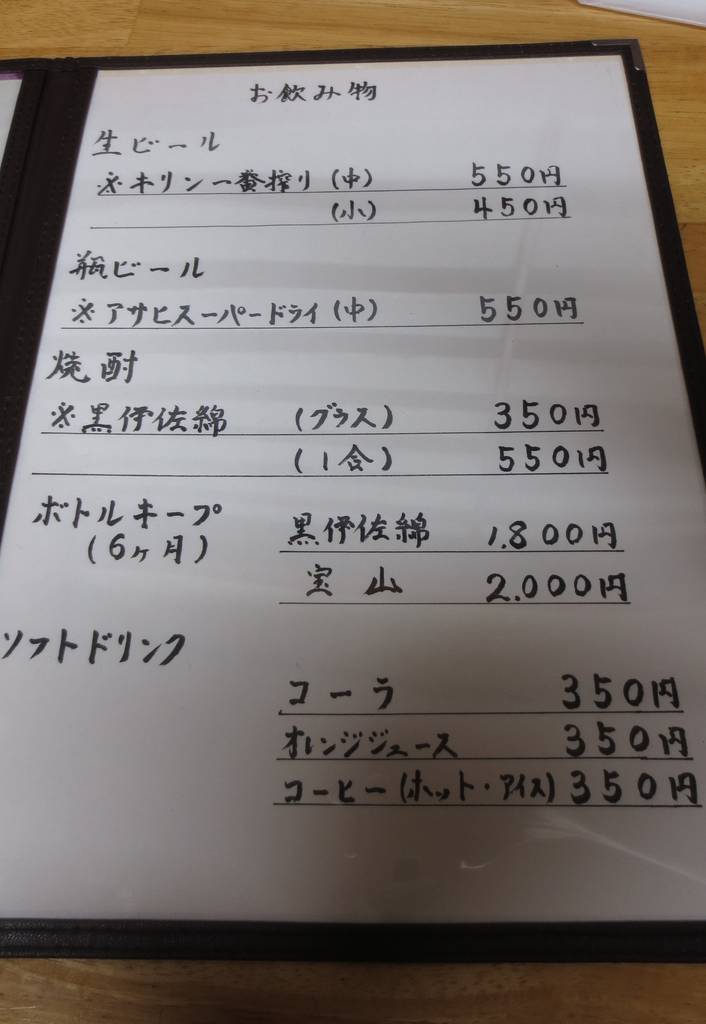 お飲み物
生ビール
※キリン一番搾り(中) 550円
(小) 450円
瓶ビール
※アサヒスーパードライ(中) 550円
焼酎
※黒伊佐錦 (グラス) 350円
(1合) 550円
ボトルキープ 黒伊佐錦 1.800円
(6ヶ月) 宝山 2.000円
ソフトドリンク
コーラ 350円
オレンジジュース 350円
コーヒー(ホット・アイス) 350円